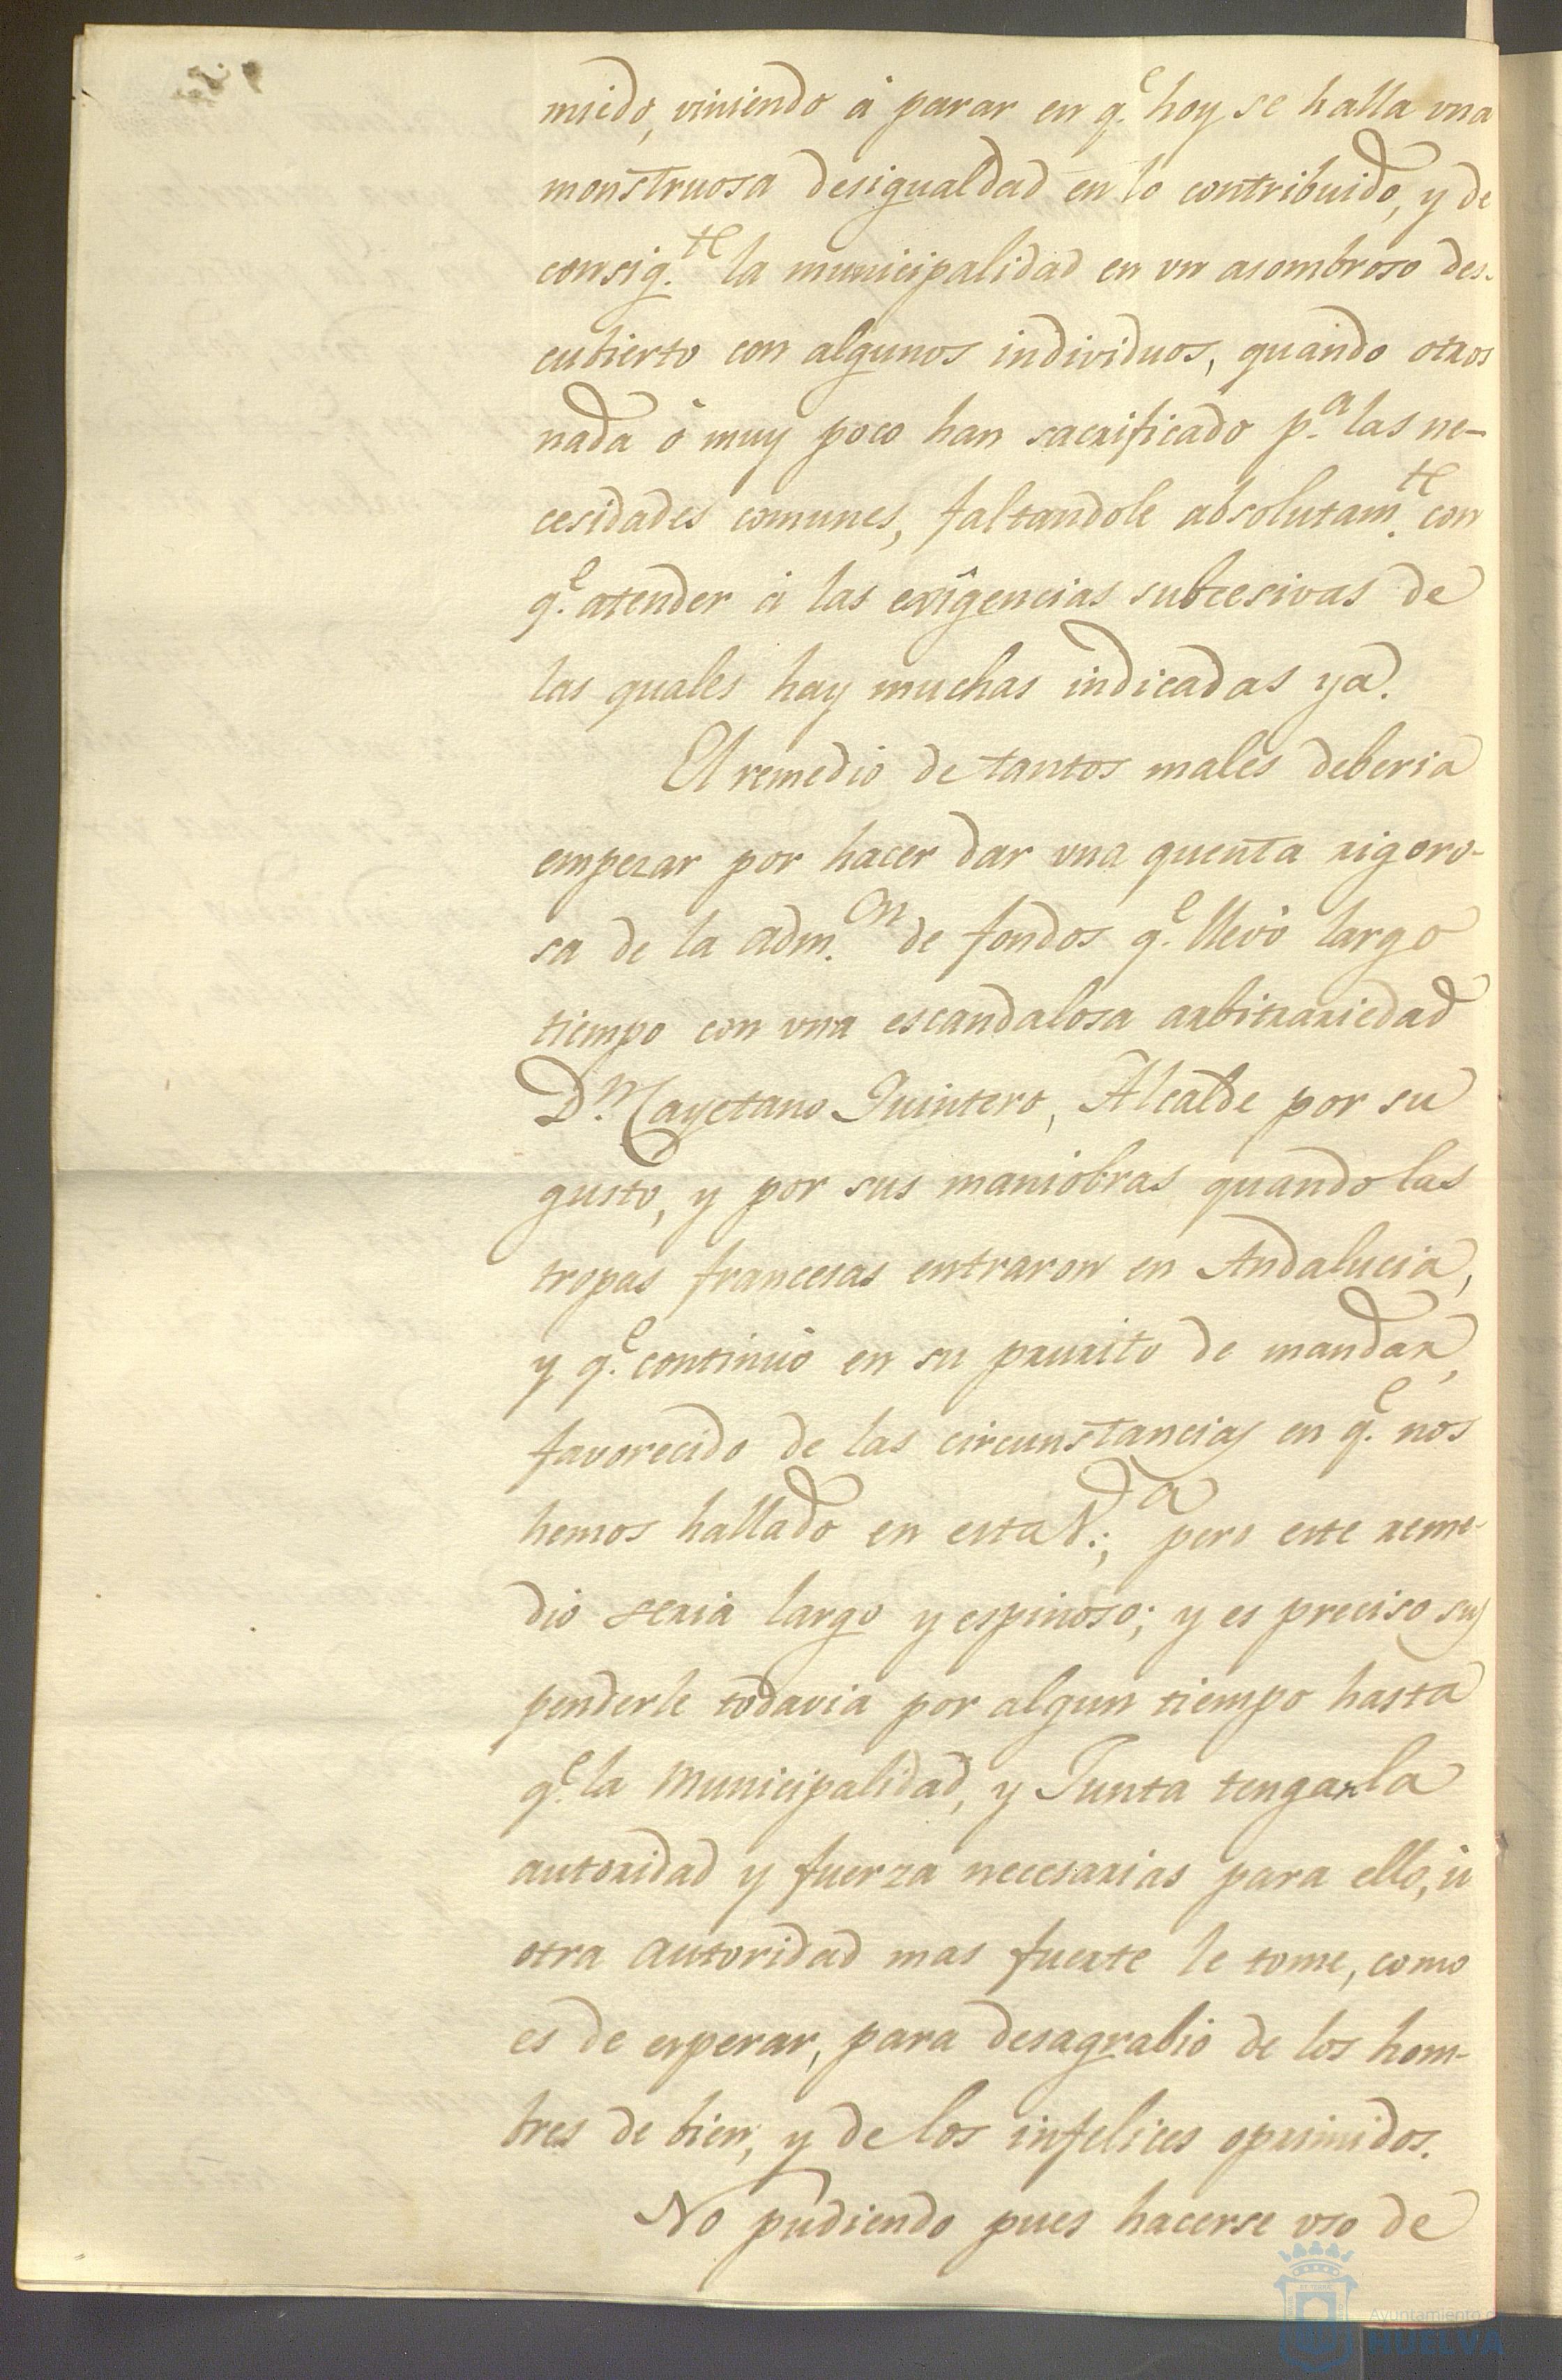 miedo, viniendo á parar en q.e hoy se halla vna
monstruosa desigualdad en lo contribuido, y de
consig.te la municipalidad en vn asombroso des-
cubierto con algunos individuos, quando otros
nada ó muy poco han sacrificado p.a las ne-
cesidades comunes, faltandole absolutam.te con
q.e atender á las exîgencias subcesivas de
las quales hay muchas indicadas ya.
El remedio de tantos males deberia
empezar por hacer dar vna quenta rigoro-
sa de la adm.on de fondos q.e llevó largo
tiempo con vna escandalosa arbitrariedad
D.n Cayetano Quintero, Alcalde por su
gusto, y por sus maniobras quando las
tropas francesas entraron en Andalucia,
y q.e continuó en su prurito de mandar,
favorecido de las circunstancias en q.e nos
hemos hallado en esta V.a; pero este reme-
dio seria largo y espinoso; y es preciso sus
penderle todavia por algun tiempo hasta
q.e la Municipalidad, y Junta tengan la
autoridad y fuerza necesarias para ello, ú
otra autoridad mas fuerte le tome, como
es de esperar, para desagrabio de los hom-
bres de bien, y de los infelices oprimidos.
No pudiendo pues hacerse vso de
Ayuntamiento de
HUELVA